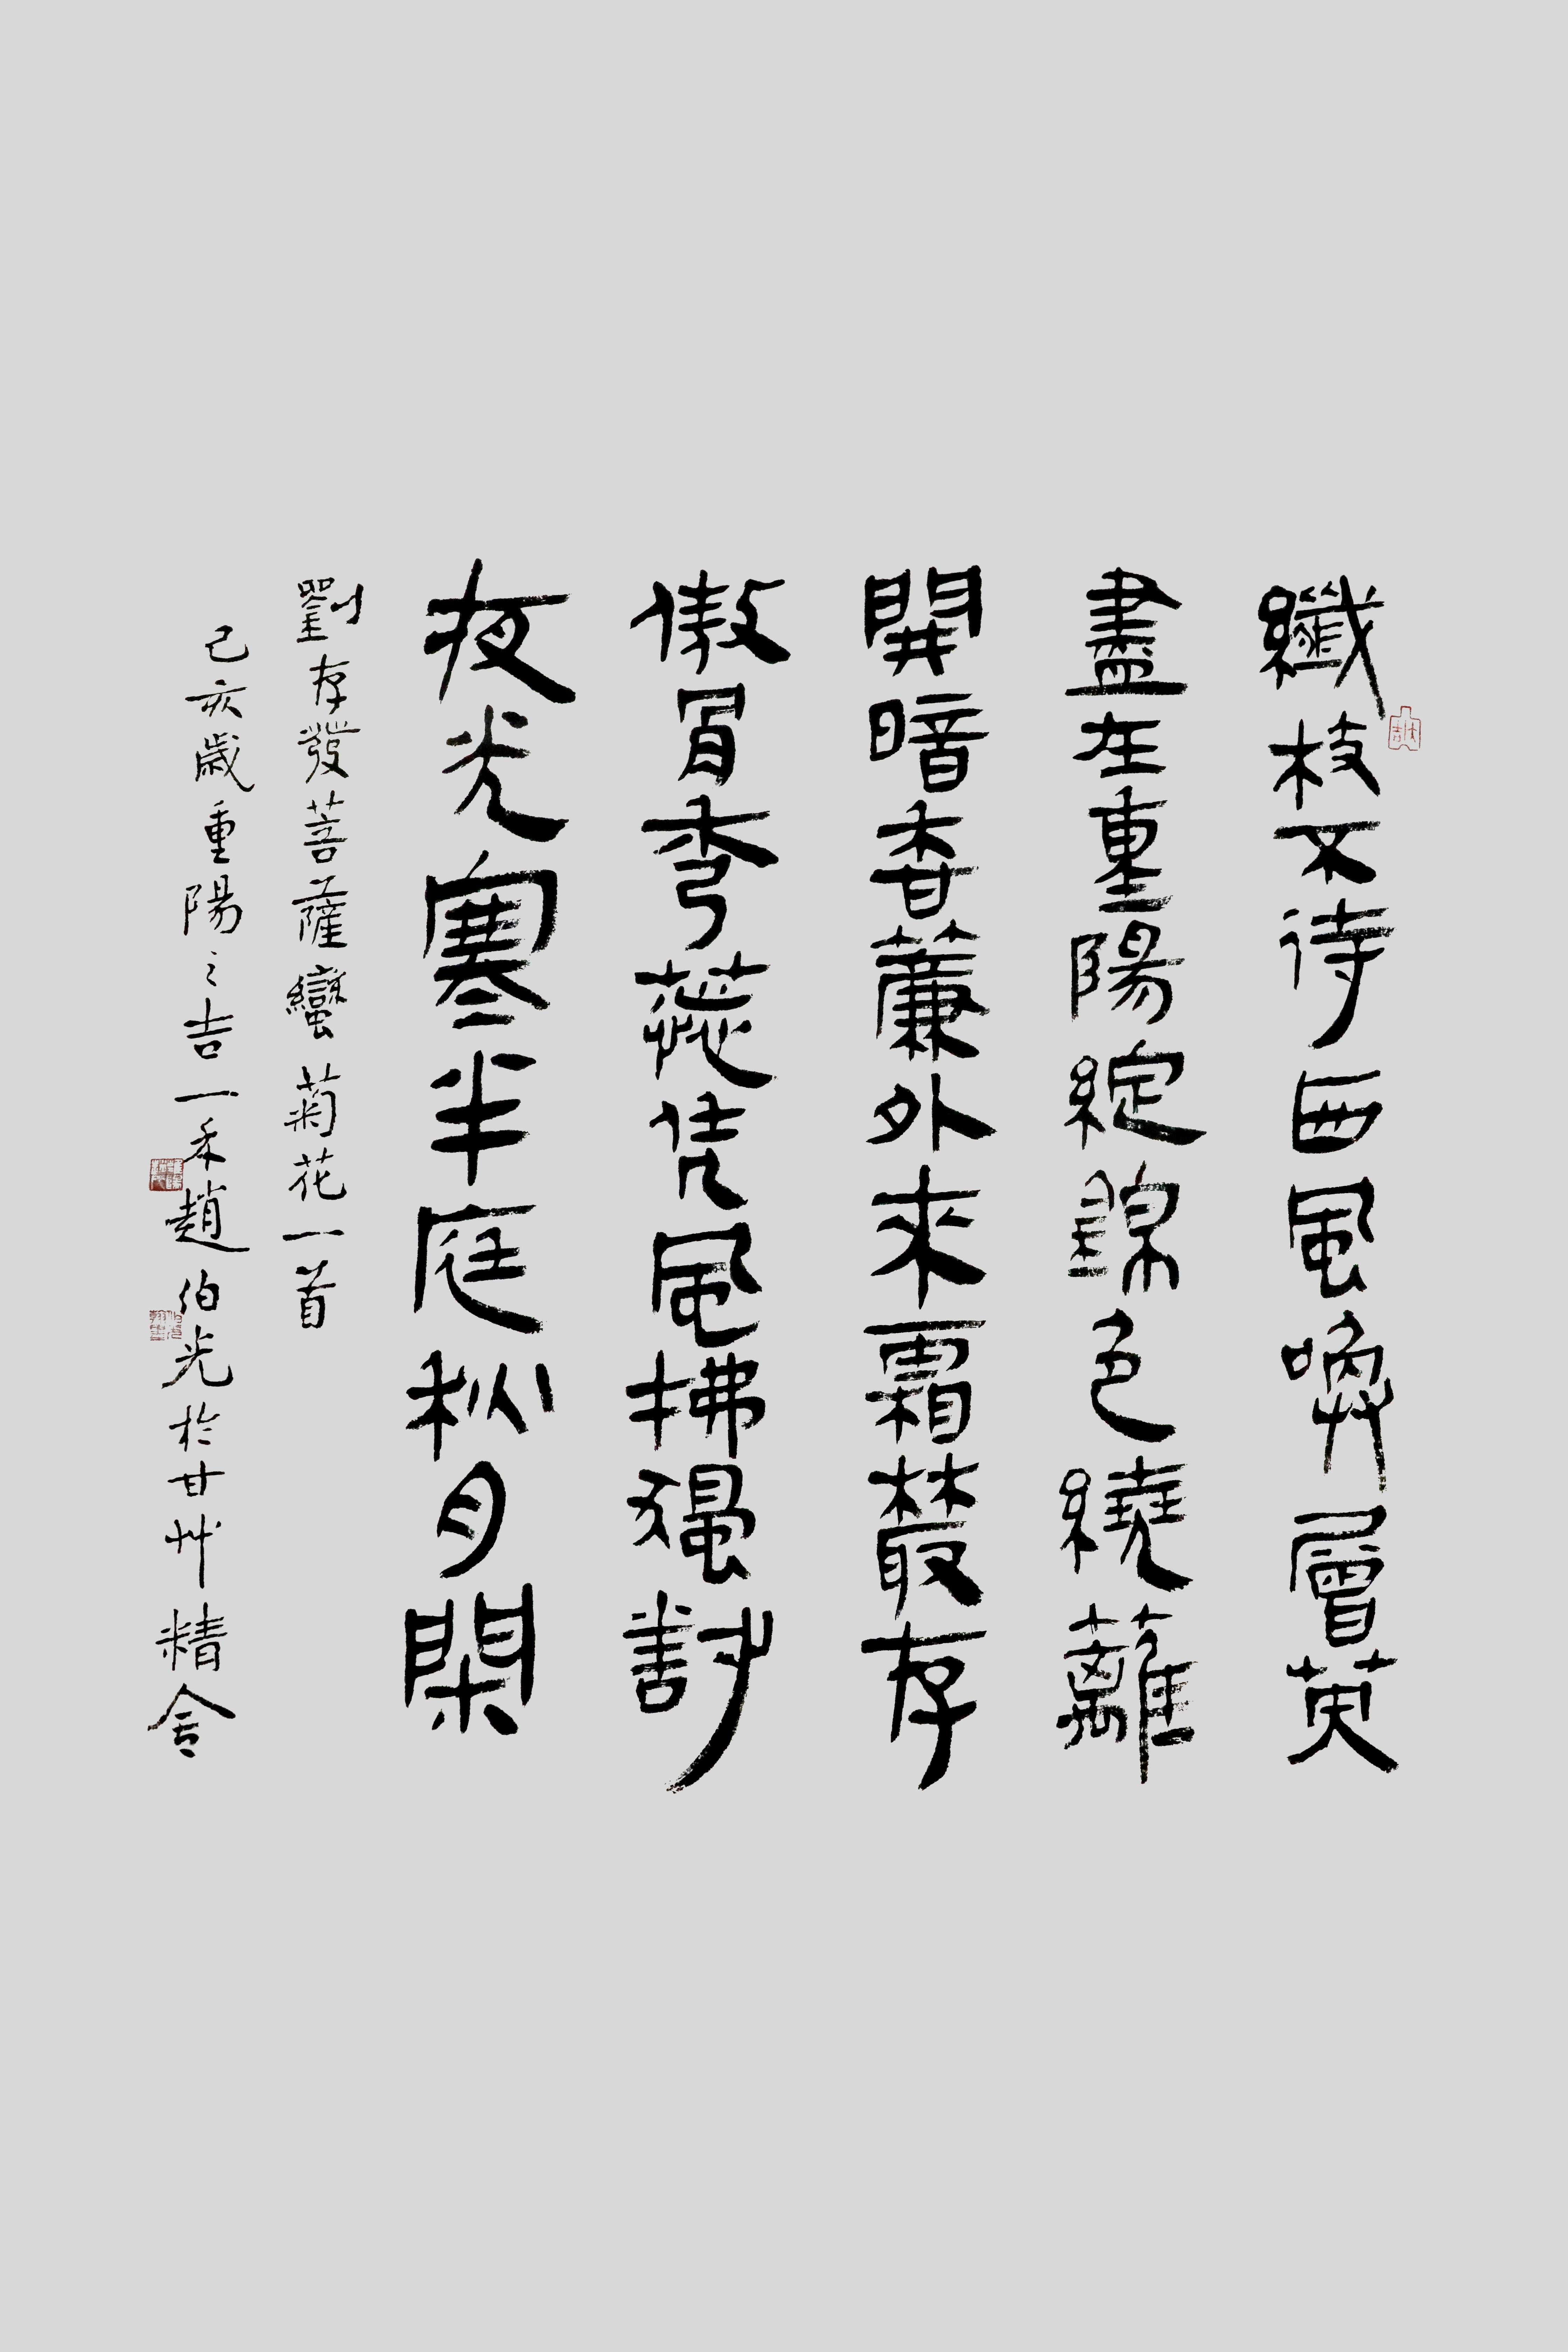 纖枝不待西風喚層英
盡在重陽綻錦色繞蘺
開暗香簾外來霜叢存
傲骨季蕊凭風拂獨影
夜光寒半庭秋月閑
劉存發菩薩蠻菊花一首
己亥歲重陽之吉一禾趙伯光於甘艸精舍